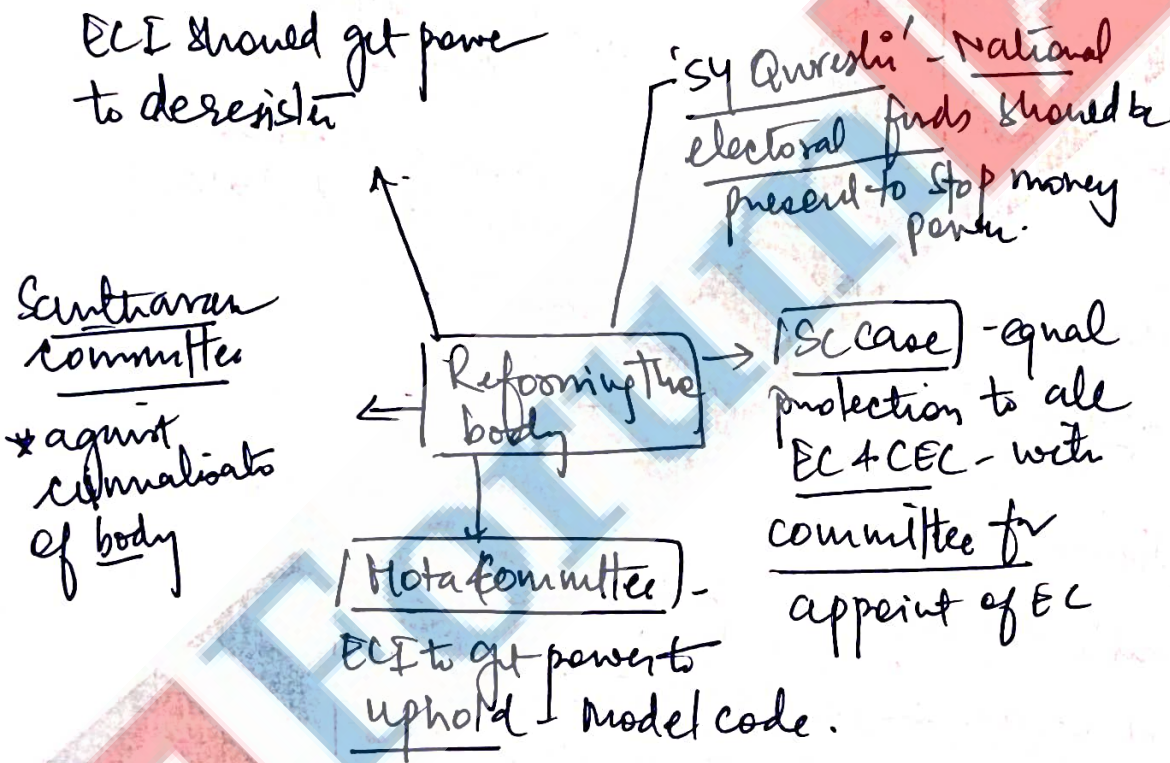 ECI should get powe
to deregister
'SY Qureshi' - National
electoral funds should be
present to stop money
power.
Santhanam
committee
* against
criminalisato
of body
Reforming the
body
SC case - equal
protection to all
EC & CEC - with
committee for
appoint of EC
Hota Committee -
ECI to get power to
uphold - model code.
Forum